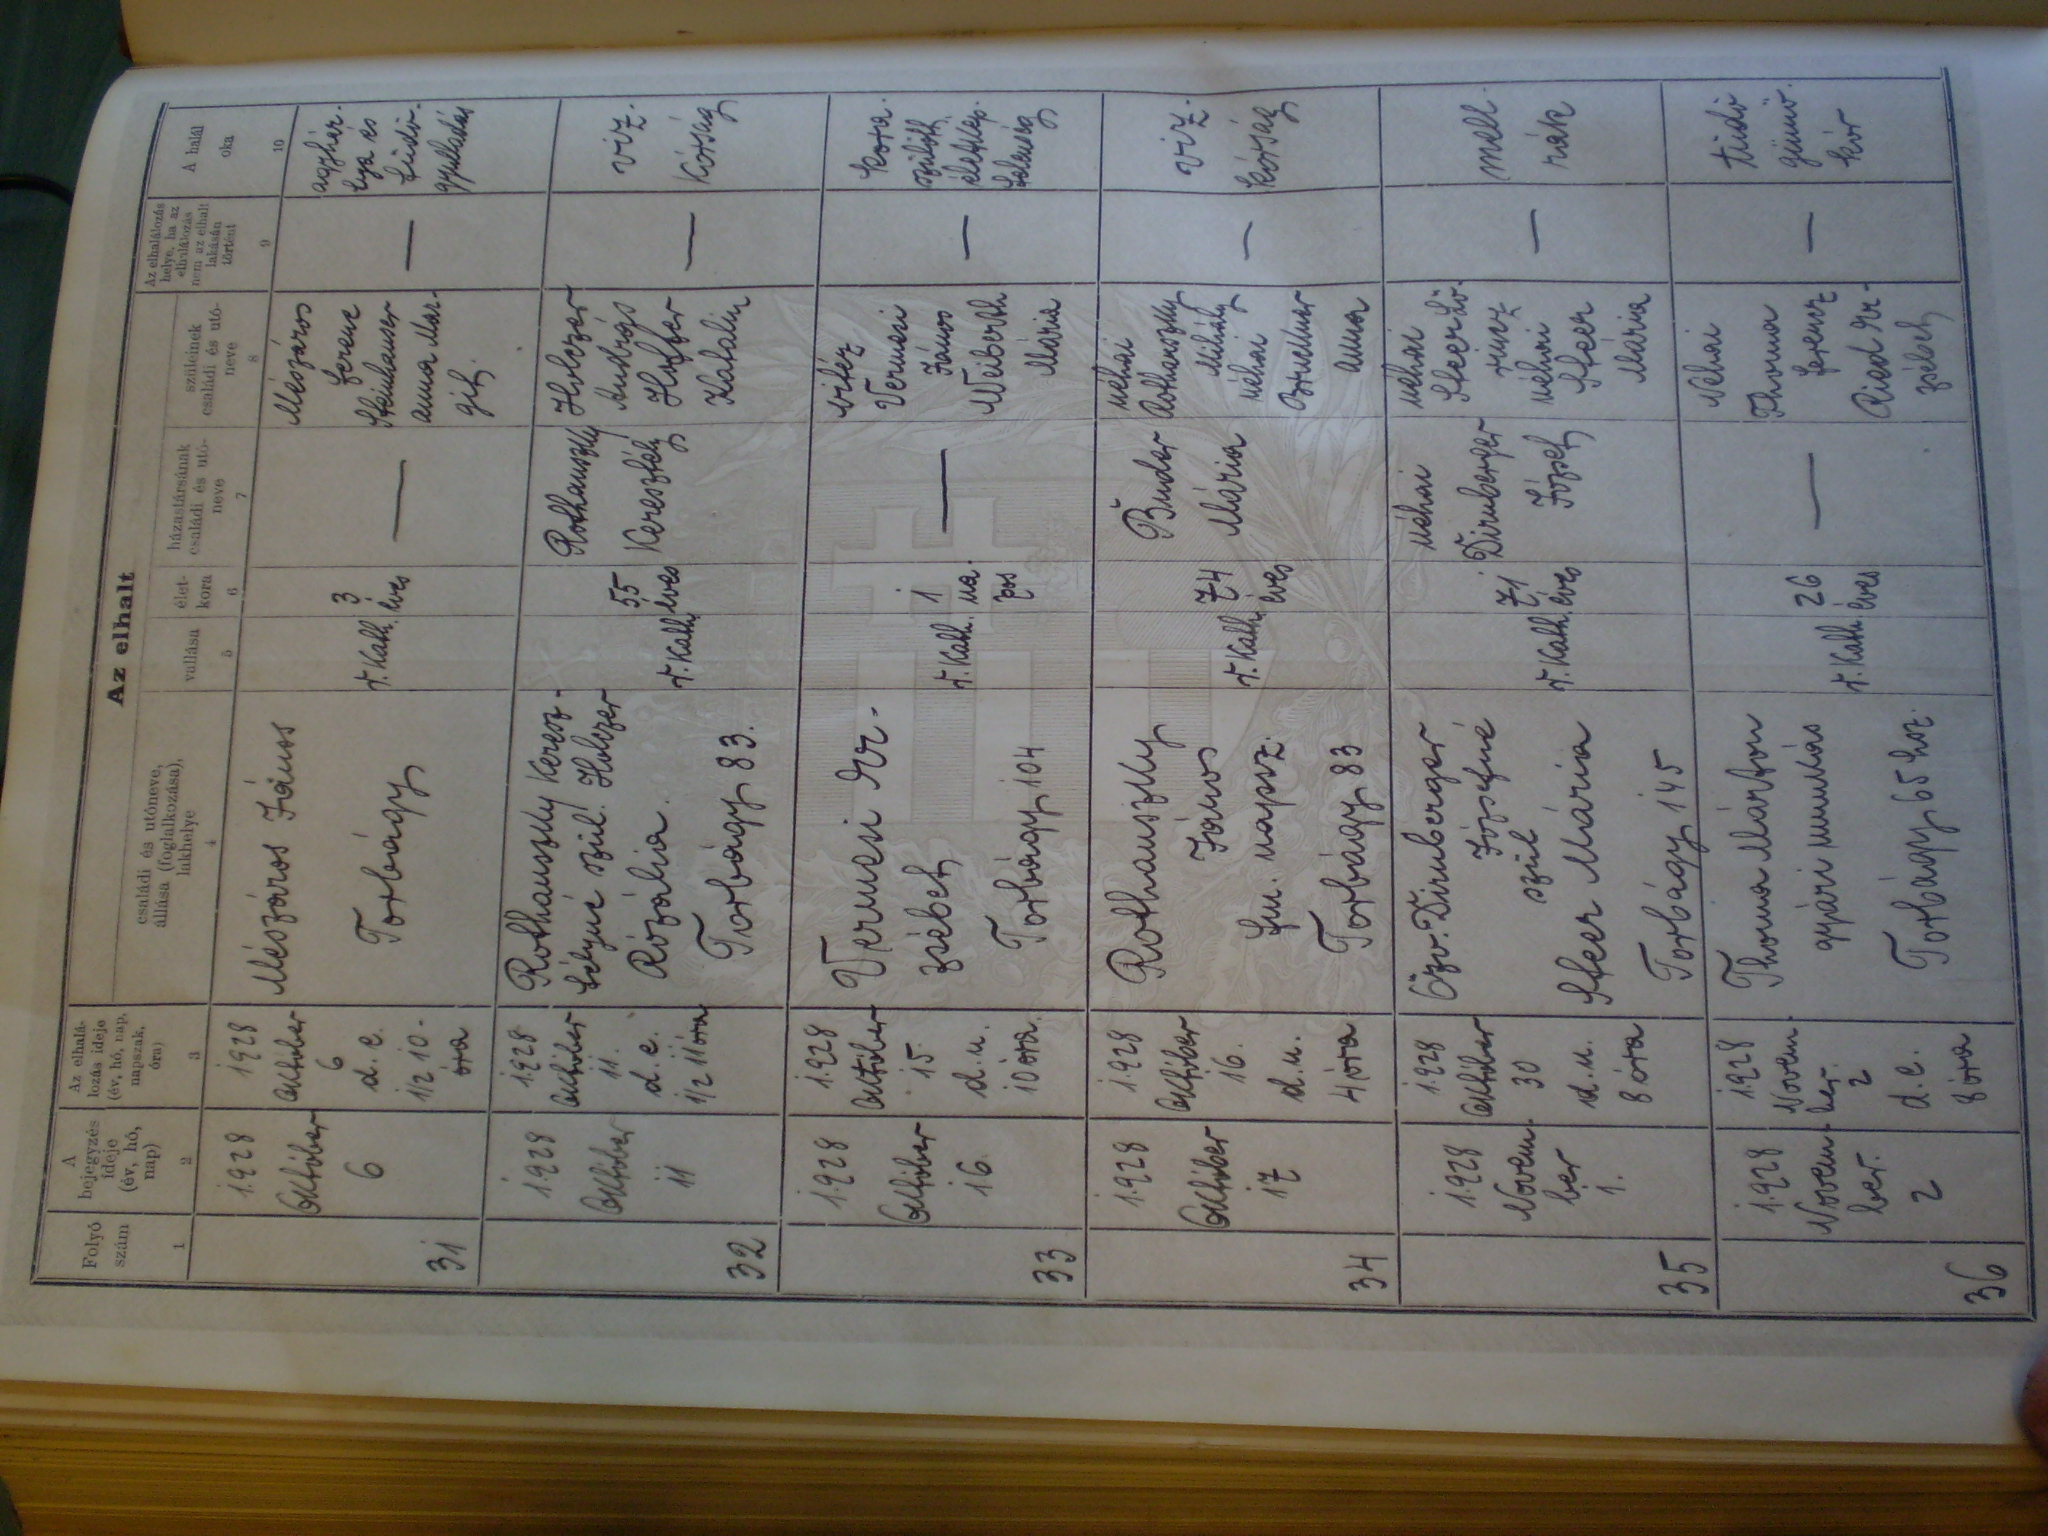 Az elhalt
Folyó
szám
1
A
bejegyzés
ideje
(év, hó,
nap)
2
Az elhalá-
lozás ideje
(év, hó, nap,
napszak,
óra)
3
családi és utóneve,
állása (foglalkozása),
lakhelye
4
vallása
5
élet-
kora
6
házastársának
családi és utó-
neve
7
szüleinek
családi és utó-
neve
8
Az elhalálozás
helye, ha az
elhalálozás
nem az elhalt
lakásán
történt
9
A halál
oka
10
31
1928
Október
6
1928
október
6
d. e.
1/2 10-
óra
Mészáros János
Torbágy
r. kath.
3
éves
—
Mészáros
Ferenc
Steinhauser
Anna Mar-
git
—
agyhár-
tya és
tüdő-
gyulladás
32
1928
Október
11
1928
október
11.
d. e.
1/2 11 óra
Rothauszky Keresz-
télyné szül. Holczer
Rozália
Torbágy 83.
r. kath.
55
éves
Rothauszky
Keresztély
Holczer
András
Hoffer
Katalin
—
víz-
kórság
33
1928
Október
16
1928
október
15.
d. u.
10 óra.
Vermesi Er-
zsébet
Torbágy 104
r. kath.
1
na-
pos
—
vitéz
Vermesi
János
Weiberth
Mária
—
kora-
szülött
életkép-
telenség
34
1928
Október
17
1928
október
16.
d. u.
4 óra
Rothauszky
János
fm. napsz.
Torbágy 83
r. kath.
74
éves
Buder
Mária
néhai
Rothauszky
Mihály
néhai
Anna
—
víz-
kórság
35
1928
Novem-
ber
1.
1928
október
30
d. u.
8 óra
özv. Dirnberger
Józsefné
szül
Steer Mária
Torbágy 145
r. kath.
71
éves
néhai
Dirnberger
József
néhai
Steer Lő-
rincz
néhai
Steer
Mária
—
mell-
rák
36
1928
Novem-
ber.
2
1928
Novem-
ber.
2
d. e.
8 óra
Thoma Márton
gyári munkás
Torbágy 65 hsz.
r. kath.
26
éves
—
Néhai
Thoma
Ferencz
Ried Er-
zsébet
—
tüdő
gümő-
kór